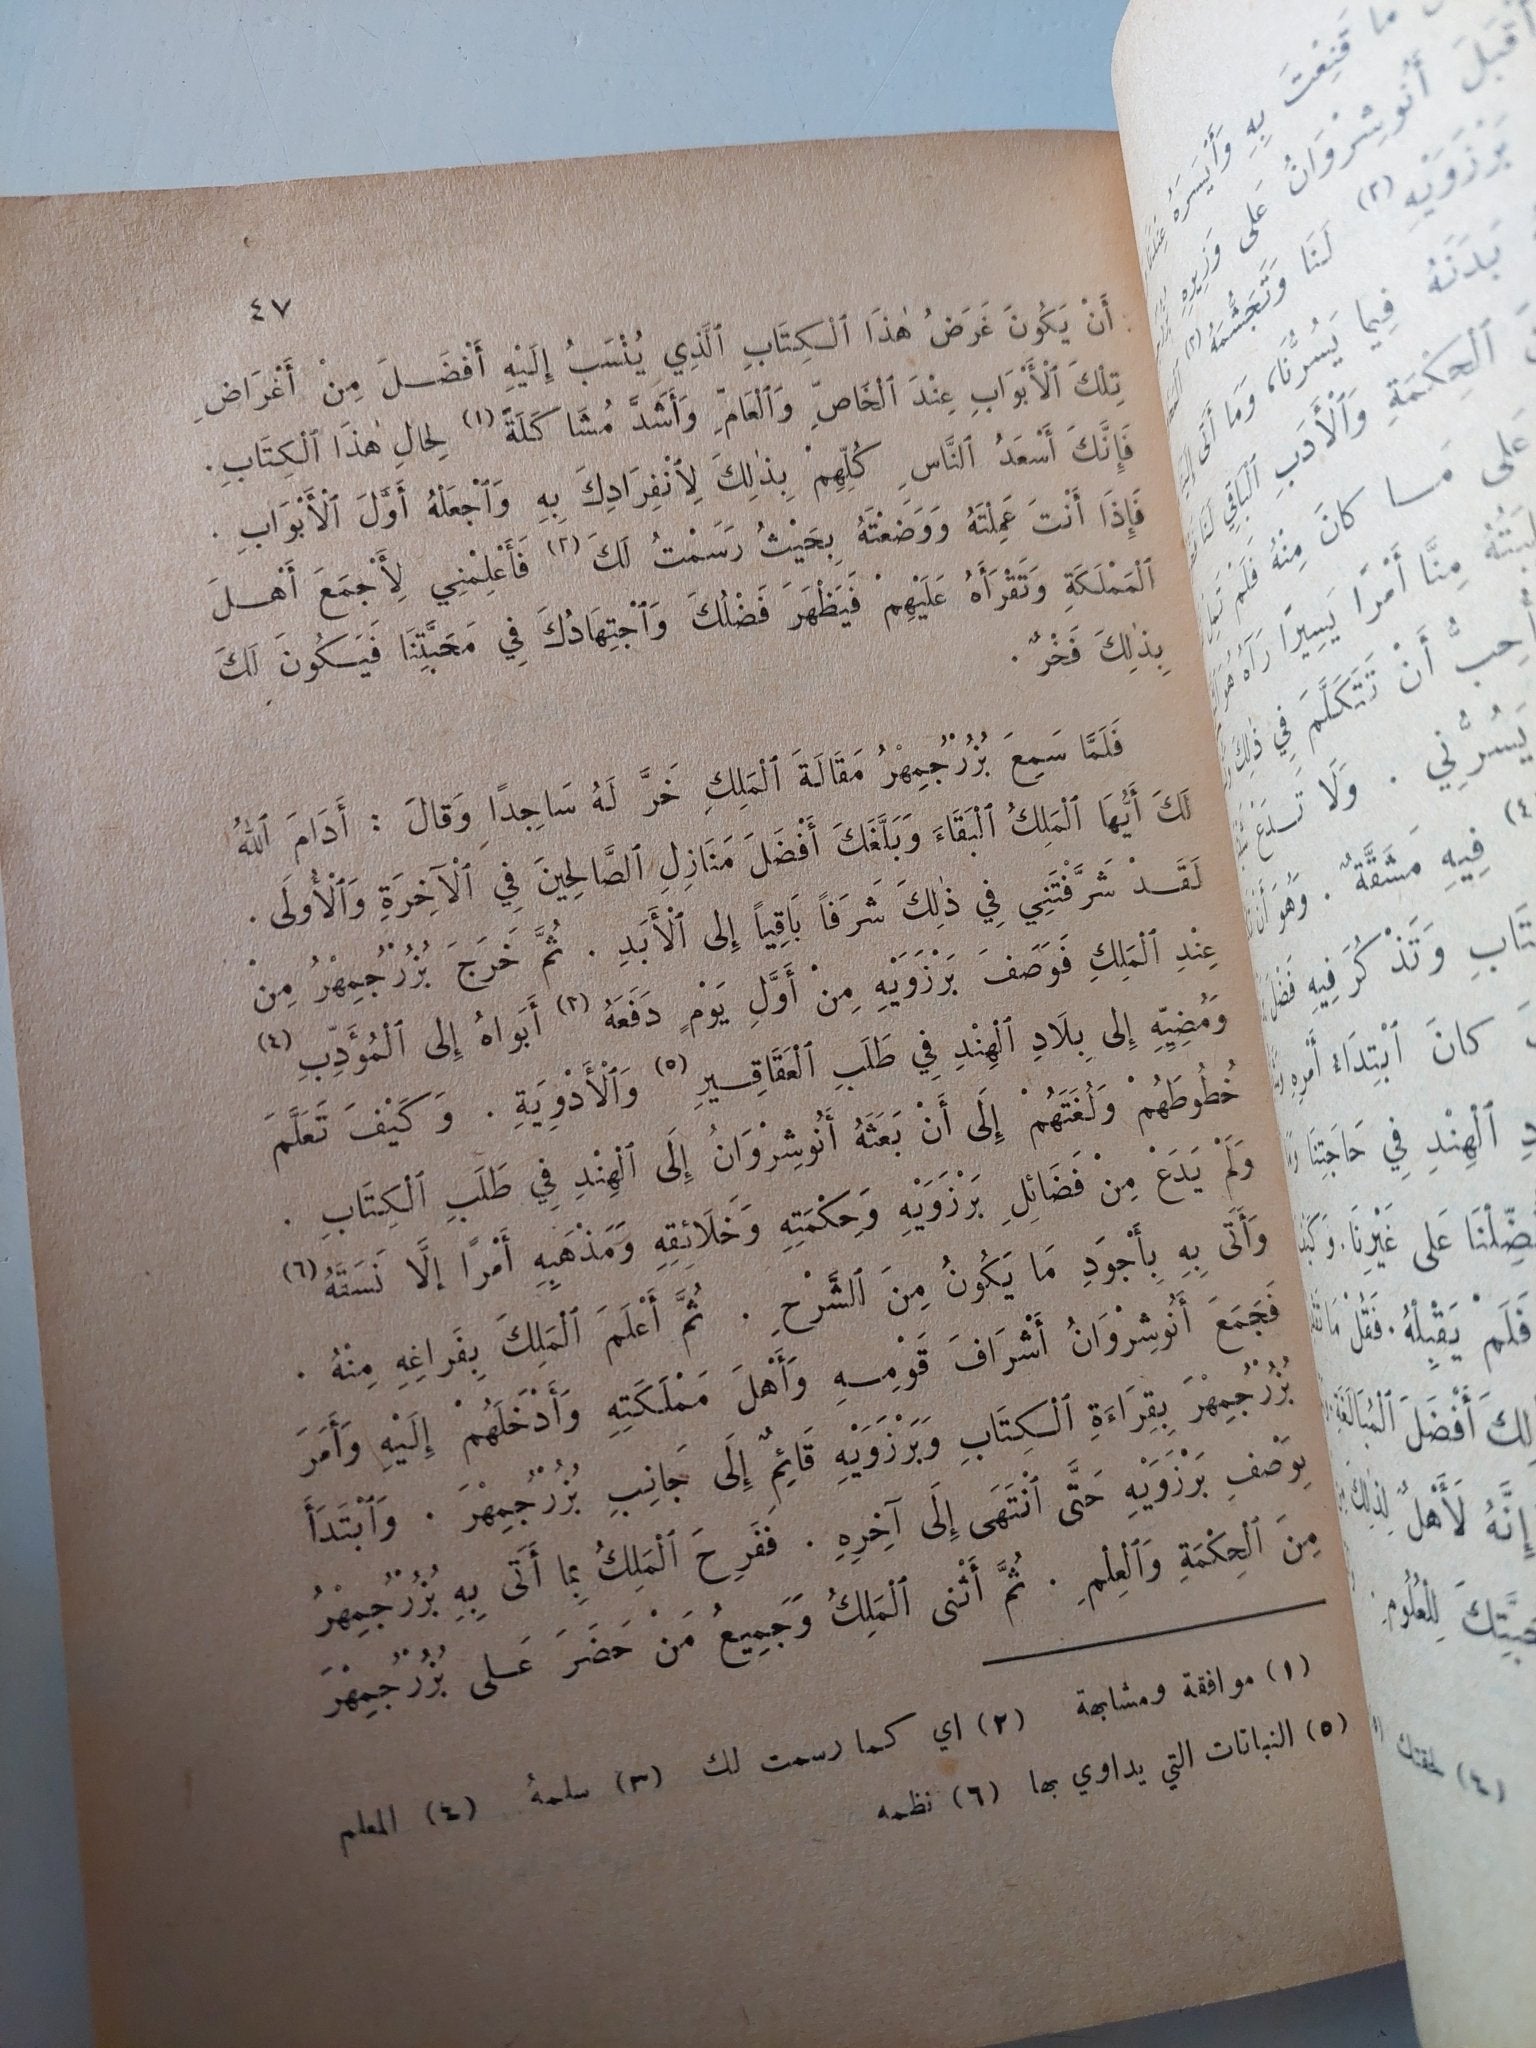 ٤٧
أَنْ يَكُونَ غَرَضُ هٰذَا ٱلْكِتَابِ ٱلَّذِي يُنْسَبُ إِلَيْهِ أَفْضَلَ مِنْ أَغْرَاضِ
تِلْكَ ٱلْأَبْوَابِ عِنْدَ ٱلْخَاصِّ وَٱلْعَامِّ وَأَشَدَّ مُشَاكَلَةً (١) لِحَالِ هٰذَا ٱلْكِتَابِ .
فَإِنَّكَ أَسْعَدُ ٱلنَّاسِ كُلِّهِمْ بِذٰلِكَ لِٱنْفِرَادِكَ بِهِ وَٱجْعَلْهُ أَوَّلَ ٱلْأَبْوَابِ .
فَإِذَا أَنْتَ عَمِلْتَهُ وَوَضَعْتَهُ بِحَيْثُ رَسَمْتُ لَكَ (٢) فَأَعْلِمْنِي لِأَجْمَعَ أَهْلَ
ٱلْمَمْلَكَةِ وَتَقْرَأَهُ عَلَيْهِمْ فَيَظْهَرَ فَضْلُكَ وَٱجْتِهَادُكَ فِي مَحَبَّتِنَا فَيَكُونَ لَكَ
بِذٰلِكَ فَخْرٌ .
فَلَمَّا سَمِعَ بُزُرْجُمِهْرُ مَقَالَةَ ٱلْمَلِكِ خَرَّ لَهُ سَاجِدًا وَقَالَ : أَدَامَ ٱللهُ
لَكَ أَيُّهَا ٱلْمَلِكُ ٱلْبَقَاءَ وَبَلَّغَكَ أَفْضَلَ مَنَازِلِ ٱلصَّالِحِينَ فِي ٱلْآخِرَةِ وَٱلْأُولَى .
لَقَدْ شَرَّفْتَنِي فِي ذٰلِكَ شَرَفاً بَاقِياً إِلى ٱلْأَبَدِ . ثُمَّ خَرَجَ بُزُرْجُمِهْرُ مِنْ
عِنْدِ ٱلْمَلِكِ فَوَصَفَ بَرْزَوَيْهِ مِنْ أَوَّلِ يَوْمٍ دَفَعَهُ (٣) أَبَوَاهُ إِلى ٱلْمُؤَدِّبِ (٤)
وَمُضِيِّهِ إِلى بِلَادِ ٱلْهِنْدِ فِي طَلَبِ ٱلْعَقَاقِيرِ (٥) وَٱلْأَدْوِيَةِ . وَكَيْفَ تَعَلَّمَ
خُطُوطَهُمْ وَلُغَتَهُمْ إِلَى أَنْ بَعَثَهُ أَنُوشِرْوَانُ إِلَى ٱلْهِنْدِ فِي طَلَبِ ٱلْكِتَابِ .
وَلَمْ يَدَعْ مِنْ فَضَائِلِ بَرْزَوَيْهِ وَحِكْمَتِهِ وَخَلَائِقِهِ وَمَذْهَبِهِ أَمْرًا إِلَّا نَسَقَهُ (٦)
وَأَتَى بِهِ بِأَجْوَدِ مَا يَكُونُ مِنَ ٱلشَّرْحِ . ثُمَّ أَعْلَمَ ٱلْمَلِكَ بِفَرَاغِهِ مِنْهُ .
فَجَمَعَ أَنُوشِرْوَانُ أَشْرَافَ قَوْمِهِ وَأَهْلَ مَمْلَكَتِهِ وَأَدْخَلَهُمْ إِلَيْهِ وَأَمَرَ
بُزُرْجُمِهْرَ بِقِرَاءَةِ ٱلْكِتَابِ وَبَرْزَوَيْهِ قَائِمٌ إِلَى جَانِبِ بُزُرْجُمِهْرَ . وَٱبْتَدَأَ
بِوَصْفِ بَرْزَوَيْهِ حَتَّى ٱنْتَهَى إِلَى آخِرِهِ . فَفَرِحَ ٱلْمَلِكُ بِمَا أَتَى بِهِ بُزُرْجُمِهْرُ
مِنَ ٱلْحِكْمَةِ وَٱلْعِلْمِ . ثُمَّ أَثْنى ٱلْمَلِكُ وَجَمِيعُ مَنْ حَضَرَ عَلى بُزُرْجُمِهْرَ
(١) موافقة ومشابهة (٢) اي كما رسمت لك (٣) سلمهُ (٤) المعلم
(٥) النباتات التي يداوي بها (٦) نظمه
ما قَنِعْتَ بِهِ وَأَيْسَرَهُ
أَقْبَلَ أَنُوشِرْوَانُ عَلى وَزِيرِهِ
بَرْزَوَيْهِ (٢) لَنَا وَتَجَشُّمَهُ (٣)
بَدَنَهُ فِيمَا يَسُرُّنَا، وَمَا أَتَى
ٱلْحِكْمَةِ وَٱلْأَدَبِ ٱلْبَاقِي لَنَا
عَلى مَا كَانَ مِنْهُ فَلَمْ
مِنَّا أَمْرًا يَسِيرًا رَآهُ هُوَ
أُحِبُّ أَنْ تَتَكَلَّمَ فِي ذٰلِكَ
يَسُرُّنِي . وَلَا تَدَعْ
(٤) فِيهِ مَشَقَّةٌ . وَهُوَ أَنْ
وَتَذْكُرَ فِيهِ فَضْلَ
كَانَ ٱبْتِدَاءُ أَمْرِهِ
ٱلْهِنْدِ فِي حَاجَتِنَا
عَلى غَيْرِنَا .
فَلَمْ يَقْبِلْهُ . فَقُلْ مَا
أَفْضَلَ ٱلْمُبَالَغَةِ
إِنَّهُ لَأَهْلٌ لِذٰلِكَ
لِلْعُلُومِ .
(٤)